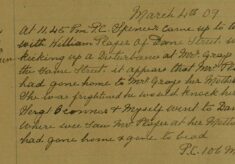 March 4th 09
At 11.45 Pm P.C. Spencer came up to
with William Roper of Dane Street
kicking up a Disterbance at Mrs Grays
the Same Street it appears that Mrs
had gone home to Mrs Grays her Mother
She was frightned he would knock her
Sergt Oconner & Myself went to Dane
where we saw Mrs Roper at her Mother
had gone home & gone to bed
P.C. 106